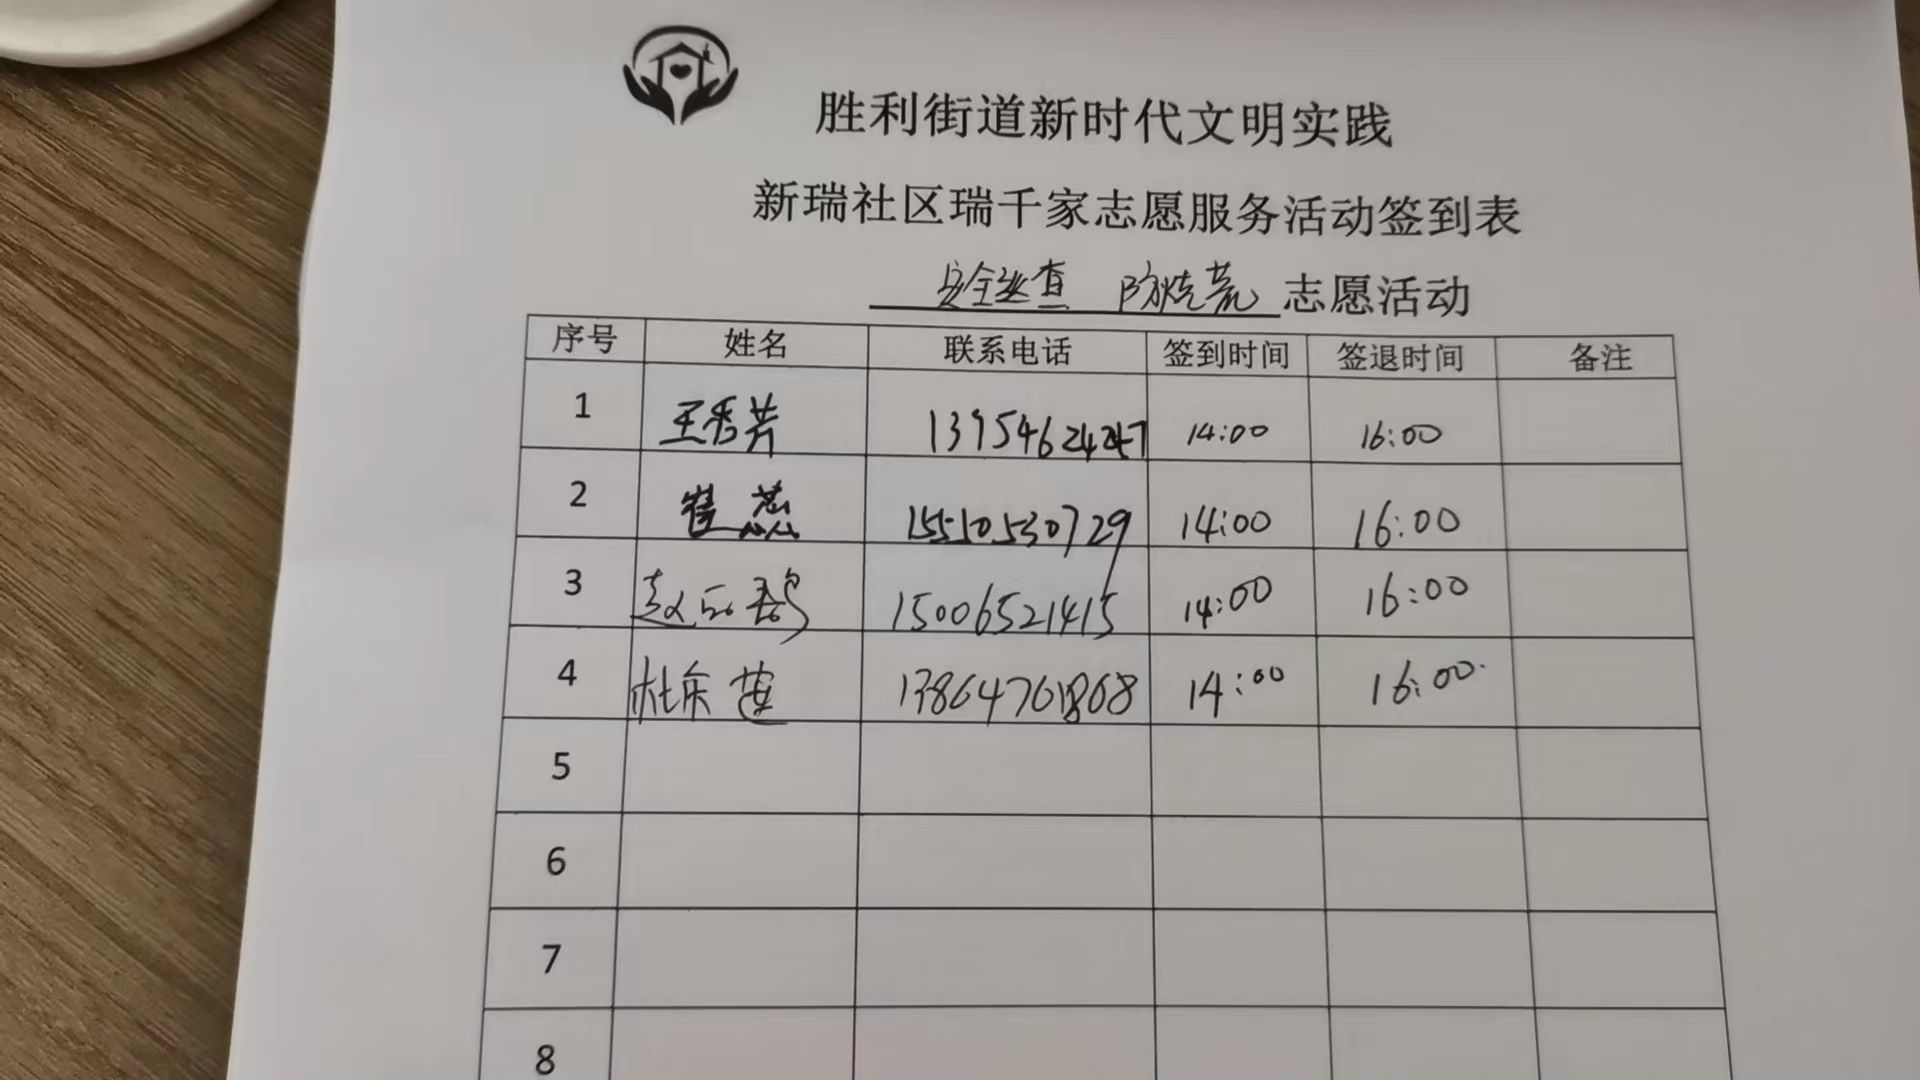 胜利街道新时代文明实践
新瑞社区瑞千家志愿服务活动签到表
安全巡查 防烧荒 志愿活动
序号 姓名 联系电话 签到时间 签退时间 备注
1 王秀芳 13954624247 14:00 16:00
2 崔蕊 15510530729 14:00 16:00
3 赵 15006521415 14:00 16:00
4 杜东莲 13864761868 14:00 16:00
5
6
7
8